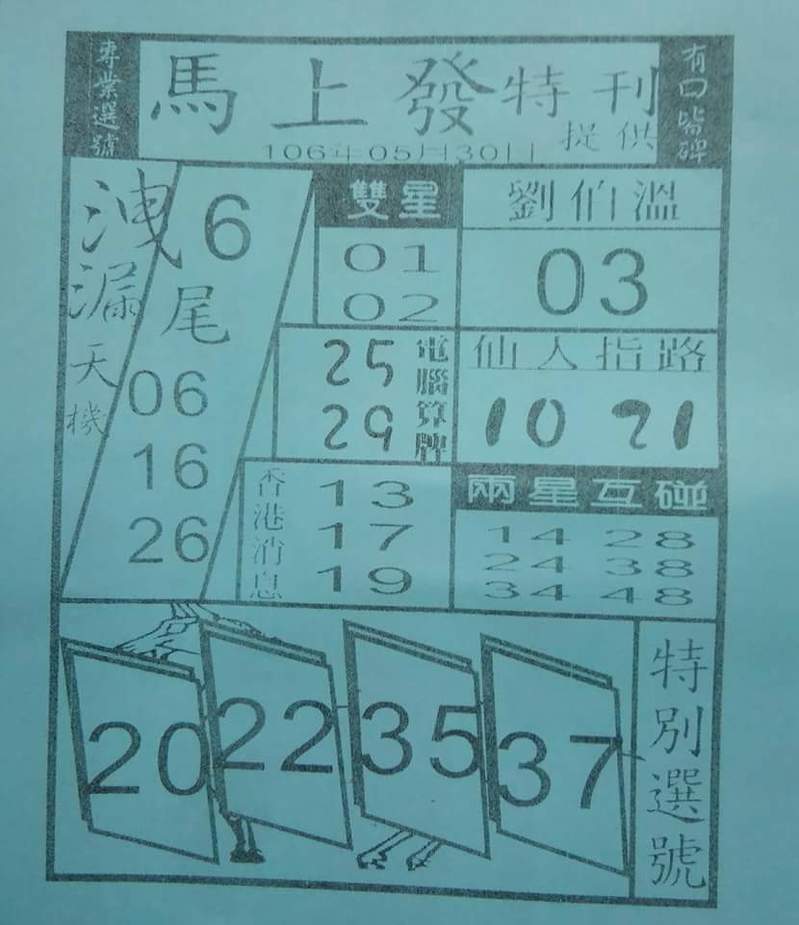 專業選號
馬上發特刊
提供
有口皆碑
106年05月30日
洩漏天機
6
尾
06
16
26
雙星
01
02
劉伯溫
03
電腦算牌
25
29
仙人指路
10 21
香港消息
13
17
19
兩星互碰
14 28
24 38
34 48
20 22 35 37
特別選號